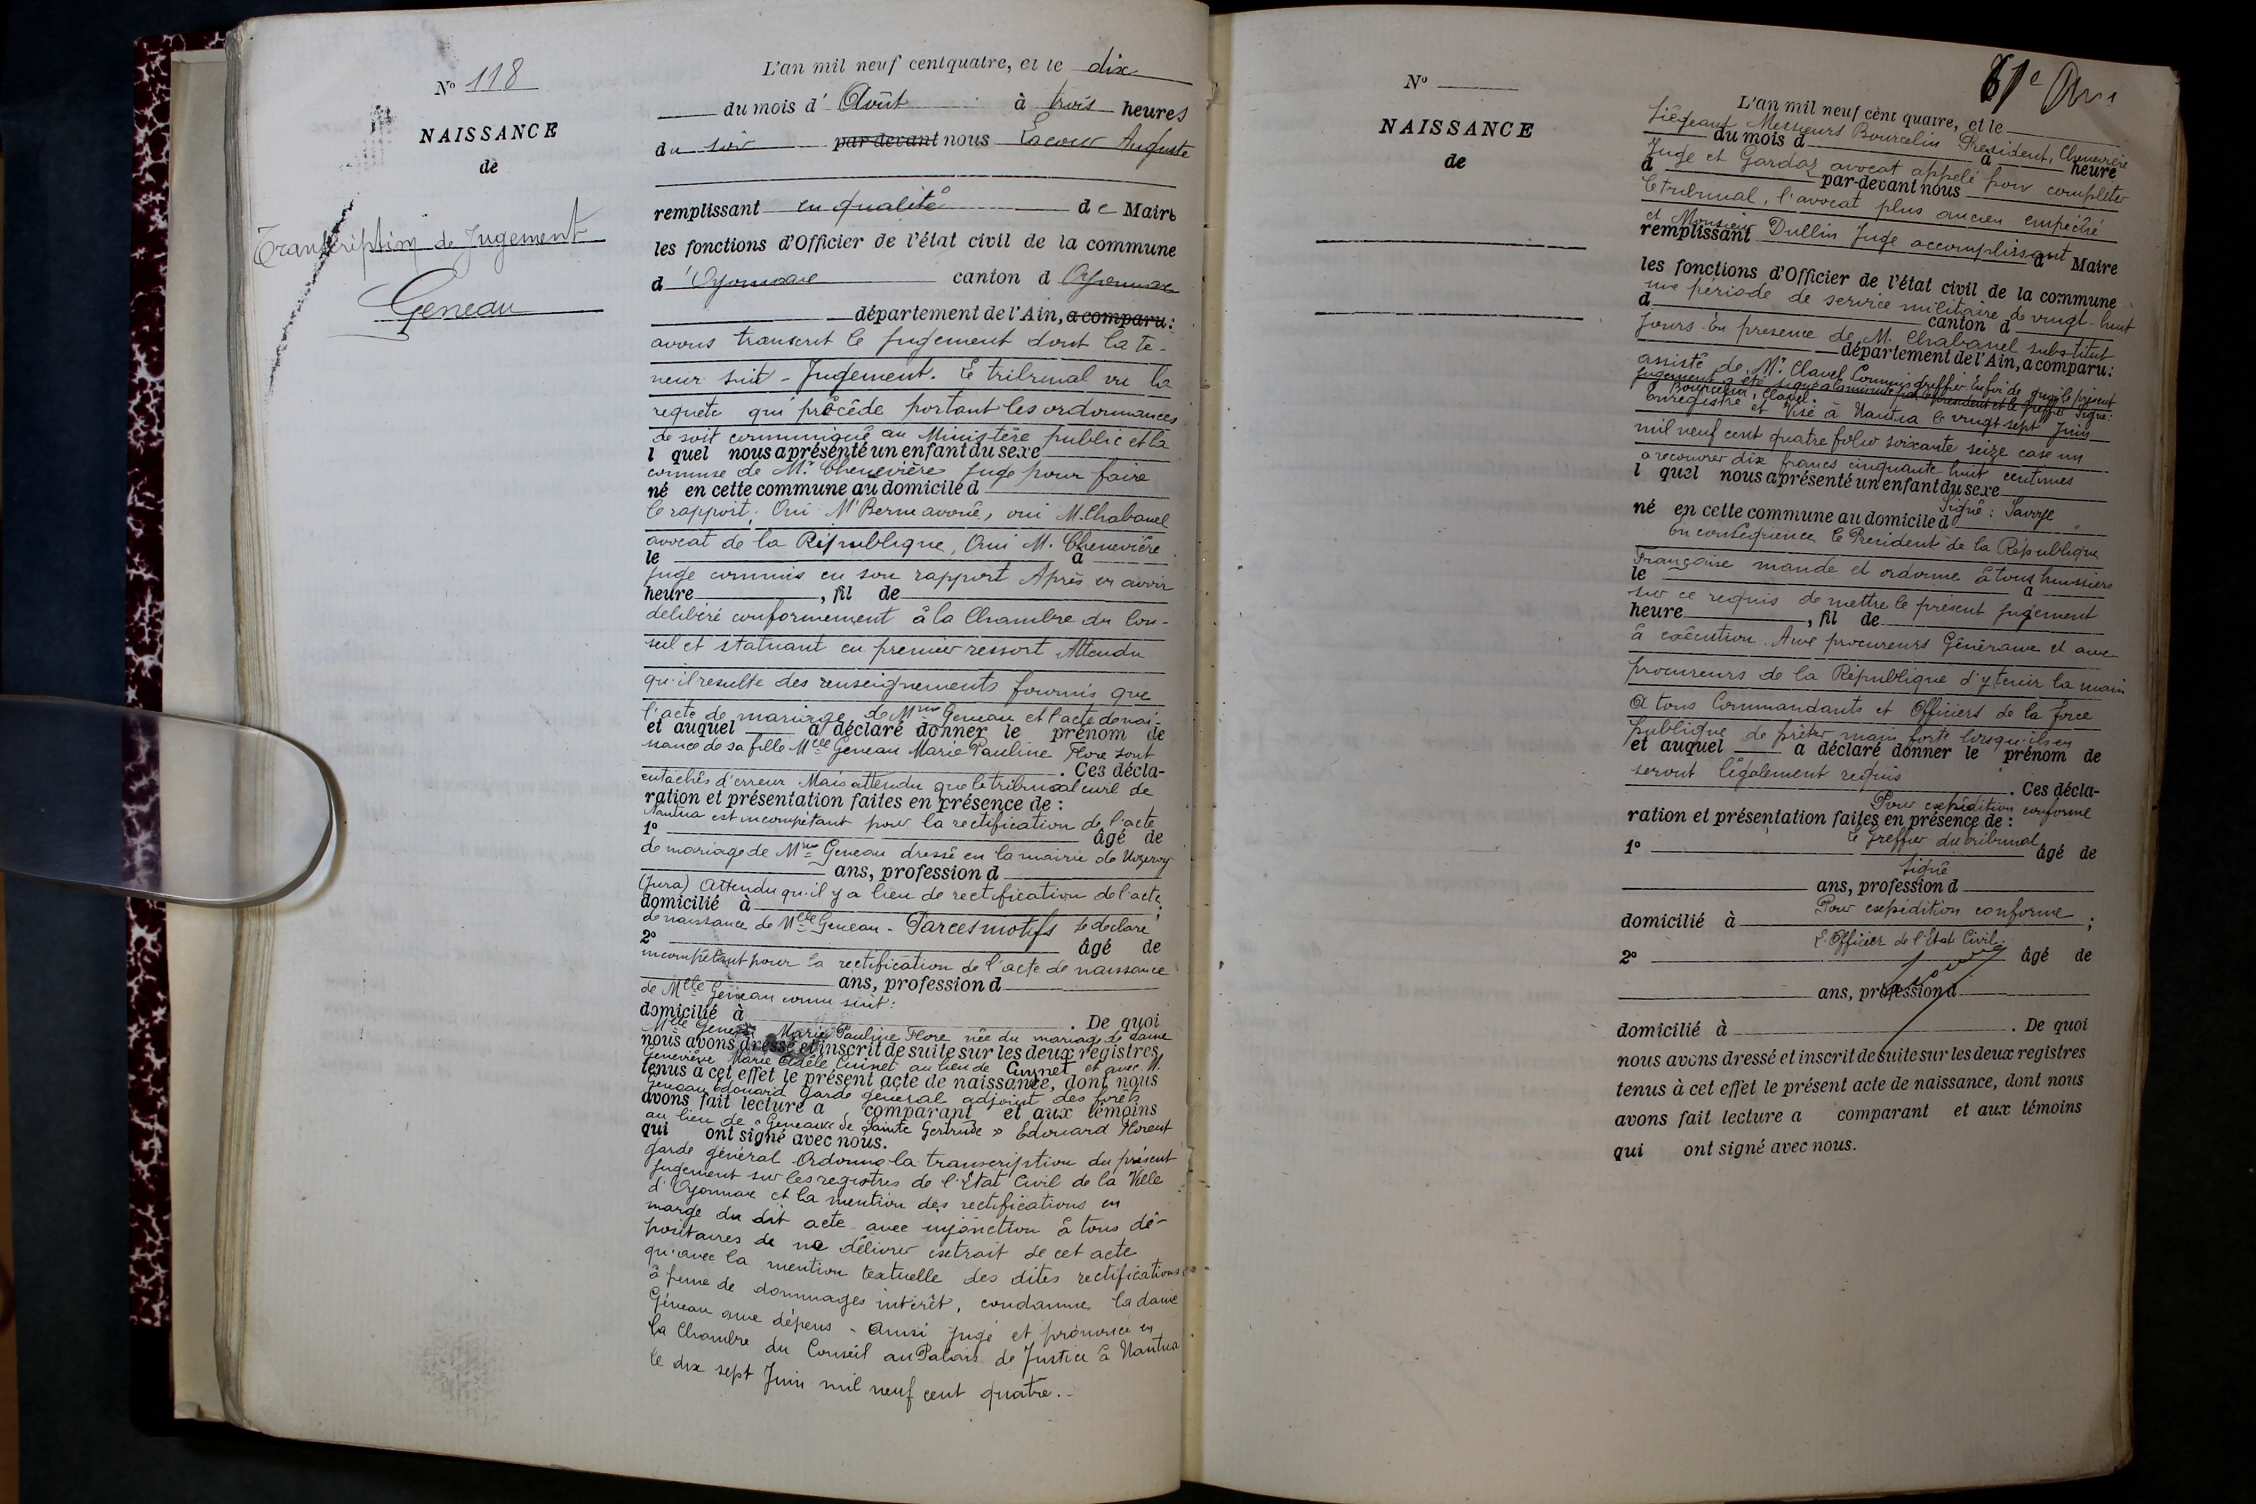 N° 118
NAISSANCE
de
Transcription de Jugement
Geneau
L'an mil neuf cent quatre, et le dix
du mois d' Août à trois heures
du soir par-devant nous Lacour Auguste
remplissant en qualité de Maire
les fonctions d'Officier de l'état civil de la commune
d'Oyonnax canton d Oyonnax
département de l'Ain, a comparu:
avons transcrit le jugement dont la te-
neur suit - Jugement. Le tribunal vu la
requête qui précède portant les ordonnances
de soit communiqué au Ministère public et la
l quel nous a présenté un enfant du sexe
commise de Mr Chenevière Juge pour faire
né en cette commune au domicile d
le rapport; Oui Me Berne avoué, oui M. Chabanel
avocat de la République, Oui M. Chenevière
le à
juge commis en son rapport Après en avoir
heure , fil de
délibéré conformément à la Chambre du Con-
seil et statuant en premier ressort Attendu
qu'il resulte des renseignements fournis que
l'acte de mariage de Mme Geneau et l'acte de nais-
et auquel a déclaré donner le prénom de
sance de sa fille Melle Geneau Marie Pauline Flore sont
. Ces décla-
entachés d'erreur Mais attendu que le tribunal civil de
ration et présentation faites en présence de :
Nantua est incompétant pour la rectification de l'acte
1° âgé de
de mariage de Mme Geneau dressé en la mairie de Nozeroy
ans, profession d
(Jura) Attendu qu'il y a lieu de rectification de l'acte
domicilié à ;
de naissance de Melle Geneau - Par ces motifs Se declare
2° âgé de
incompétant pour la rectification de l'acte de naissance
ans, profession d
de Melle Geneau comme suit:
domicilié à . De quoi
Melle Geneau Marie Pauline Flore née du mariage de dame
nous avons dressé et inscrit de suite sur les deux registres
Geneviève Marie Adèle Cuinet au lieu de Cuynet et avec M.
tenus à cet effet le présent acte de naissance, dont nous
Geneau Edouard Garde général adjoint des forêts
avons fait lecture a comparant et aux témoins
au lieu de « Geneaux de Sainte Gertrude » Edouard Florent
qui ont signé avec nous.
garde général Ordonne la transcription du présent
jugement sur les registres de l'Etat Civil de la Ville
d'Oyonnax et la mention des rectifications en
marge du dit acte avec injonction à tous dé-
positaires de ne délivrer extrait de cet acte
qu'avec la mention textuelle des dites rectifications
à peine de dommages intérêt, condamne la dame
Géneau aux dépens - Ainsi jugé et prononcé en
la Chambre du Conseil au Palais de Justice à Nantua
le dix sept Juin mil neuf cent quatre.-
N°
NAISSANCE
de
61e
L'an mil neuf cent quatre, et le
Siégeant Messieurs Bourcelin President, Chenevière
du mois d à heure
Juge et Gardaz avocat appelé pour compléter
d par-devant nous
le tribunal, l'avocat plus ancien empêché
et Monsieur Dullin Juge accomplissant
remplissant d Maire
les fonctions d'Officier de l'état civil de la commune
une période de service militaire de vingt-huit
d canton d
jours En presence de M. Chabanel substitut
département de l'Ain, a comparu:
assisté de Mr Clavel Commis greffier En foi de quoi le présent
jugement a été signé à la minute par le President et le greffier Signé:
Bourcelin, Clavel.
Enregistré et Visé à Nantua le vingt sept Juin
mil neuf cent quatre folio soixante seize case un
a recouvrer dix francs cinquante huit centimes
l quel nous a présenté un enfant du sexe
Signé: Savoye
né en cette commune au domicile d
En conséquence le President de la République
Française mande et ordonne à tous huissiers
le à
sur ce requis de mettre le présent jugement
heure , fil de
à exécution Aux procureurs Généraux et aux
procureurs de la République d'y tenir la main
A tous Commandants et Officiers de la force
publique de prêter main forte lorsqu'ils en
et auquel a déclaré donner le prénom de
seront légalement requis
. Ces décla-
Pour expédition conforme
ration et présentation faites en présence de :
Le Greffier du tribunal
1° âgé de
Signé
ans, profession d
Pour expédition conforme
domicilié à ;
L'Officier de l'Etat Civil
2° âgé de
Lacour
ans, profession d
domicilié à . De quoi
nous avons dressé et inscrit de suite sur les deux registres
tenus à cet effet le présent acte de naissance, dont nous
avons fait lecture a comparant et aux témoins
qui ont signé avec nous.